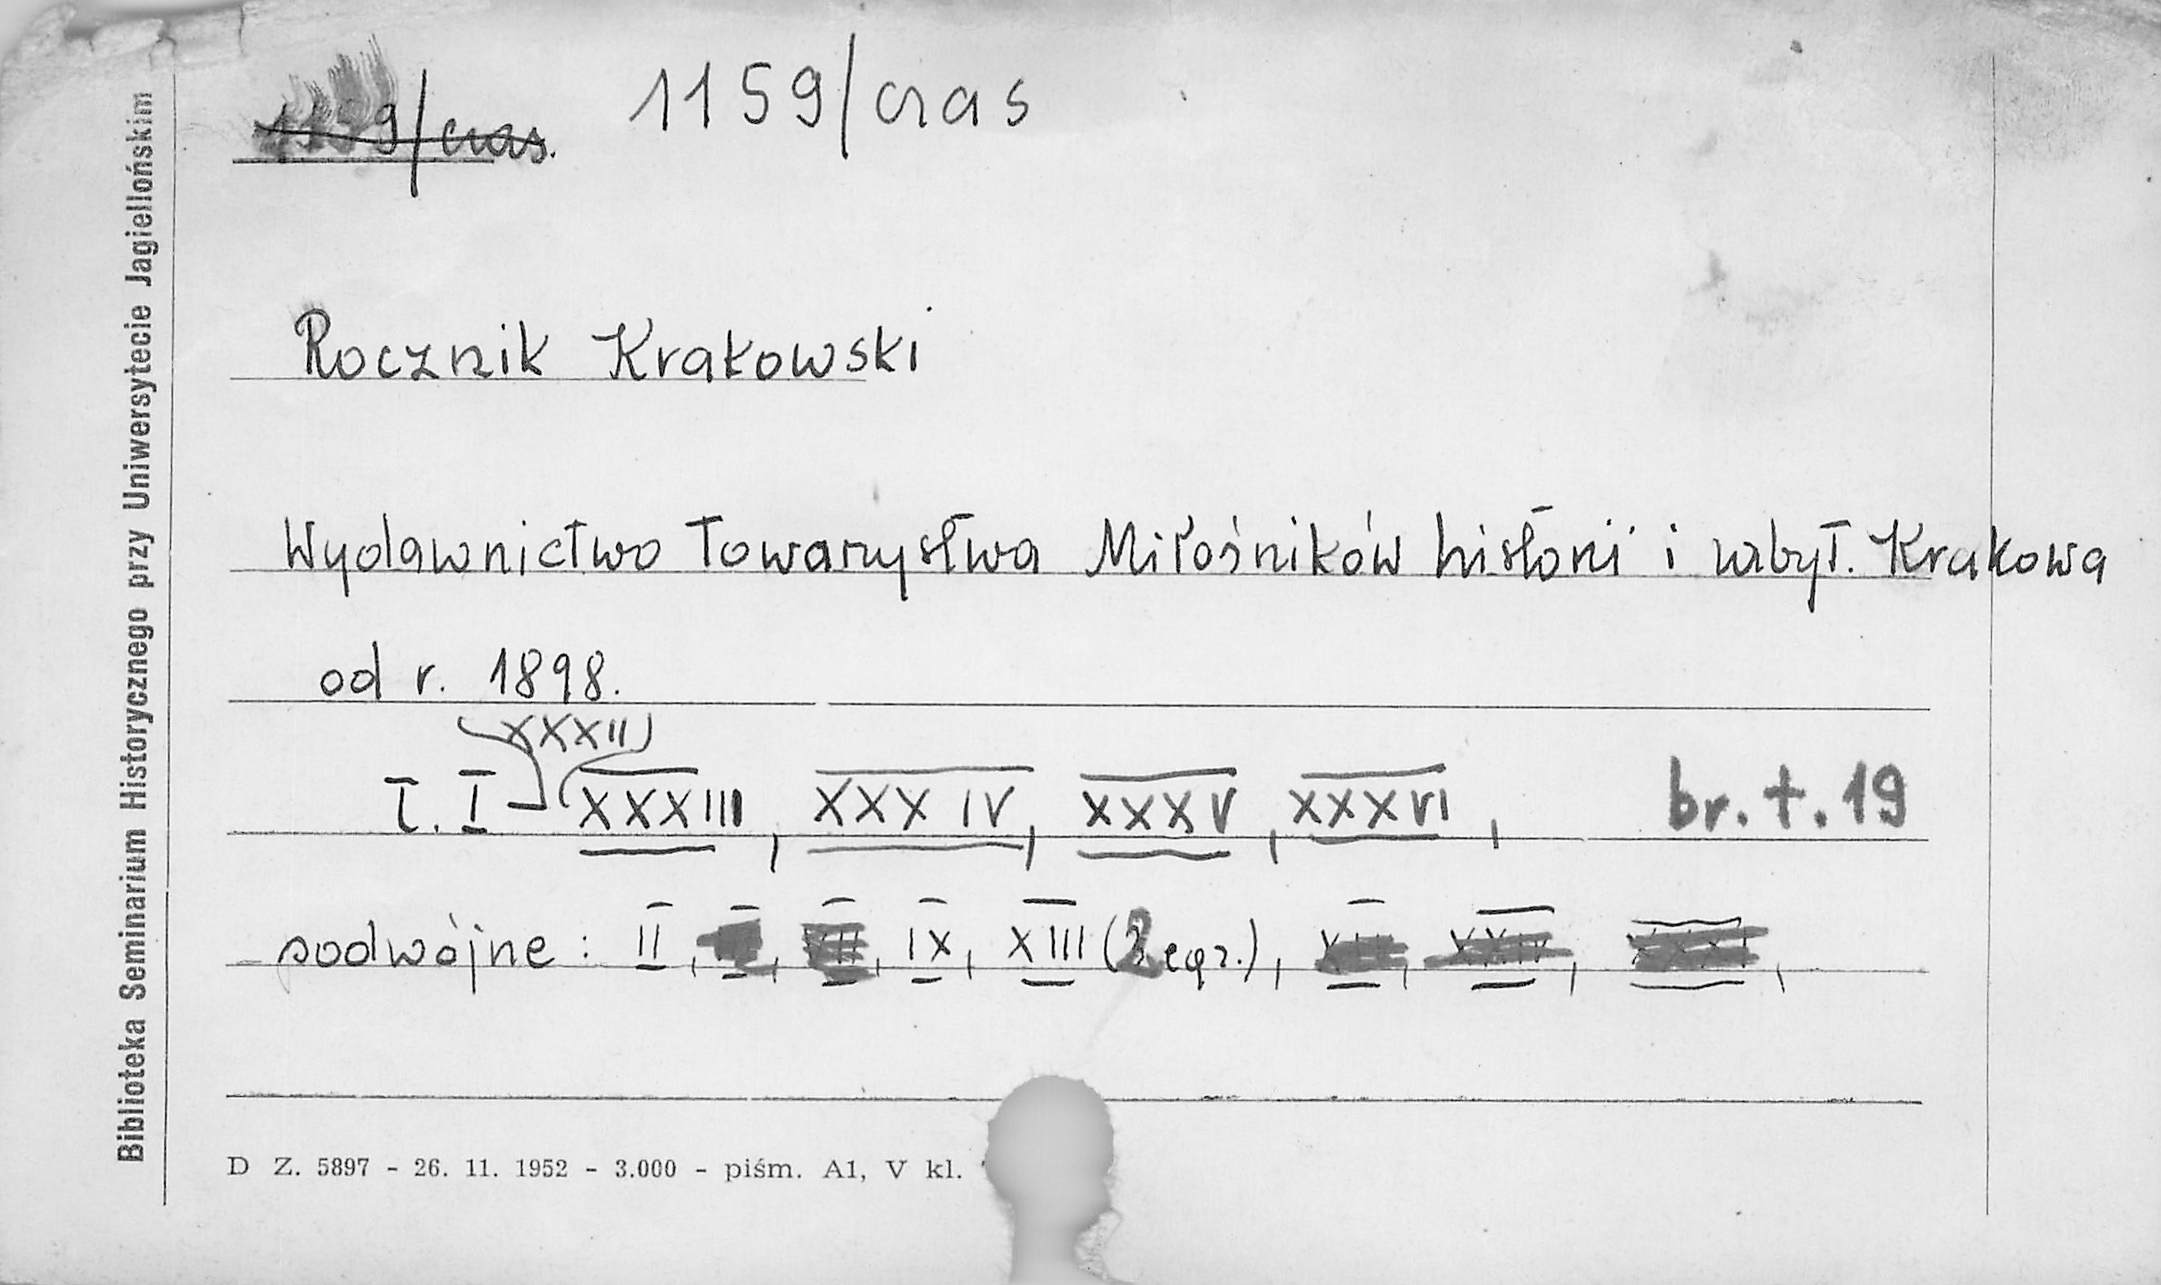 1159/czas. 1159/czas
Rocznik Krakowski
Wydawnictwo Towarzystwa Miłośników historii i zabyt. Krakowa
od r. 1898.
XXXII
t. I - XXXIII, XXXIV, XXXV, XXXVI, br. t. 19
podwójne: II, VII, IX, XIII (2 egz.), XXIV, XXXI,
D Z. 5897 - 26. 11. 1952 - 3.000 - piśm. A1, V kl.
Biblioteka Seminarium Historycznego przy Uniwersytecie Jagiellońskim